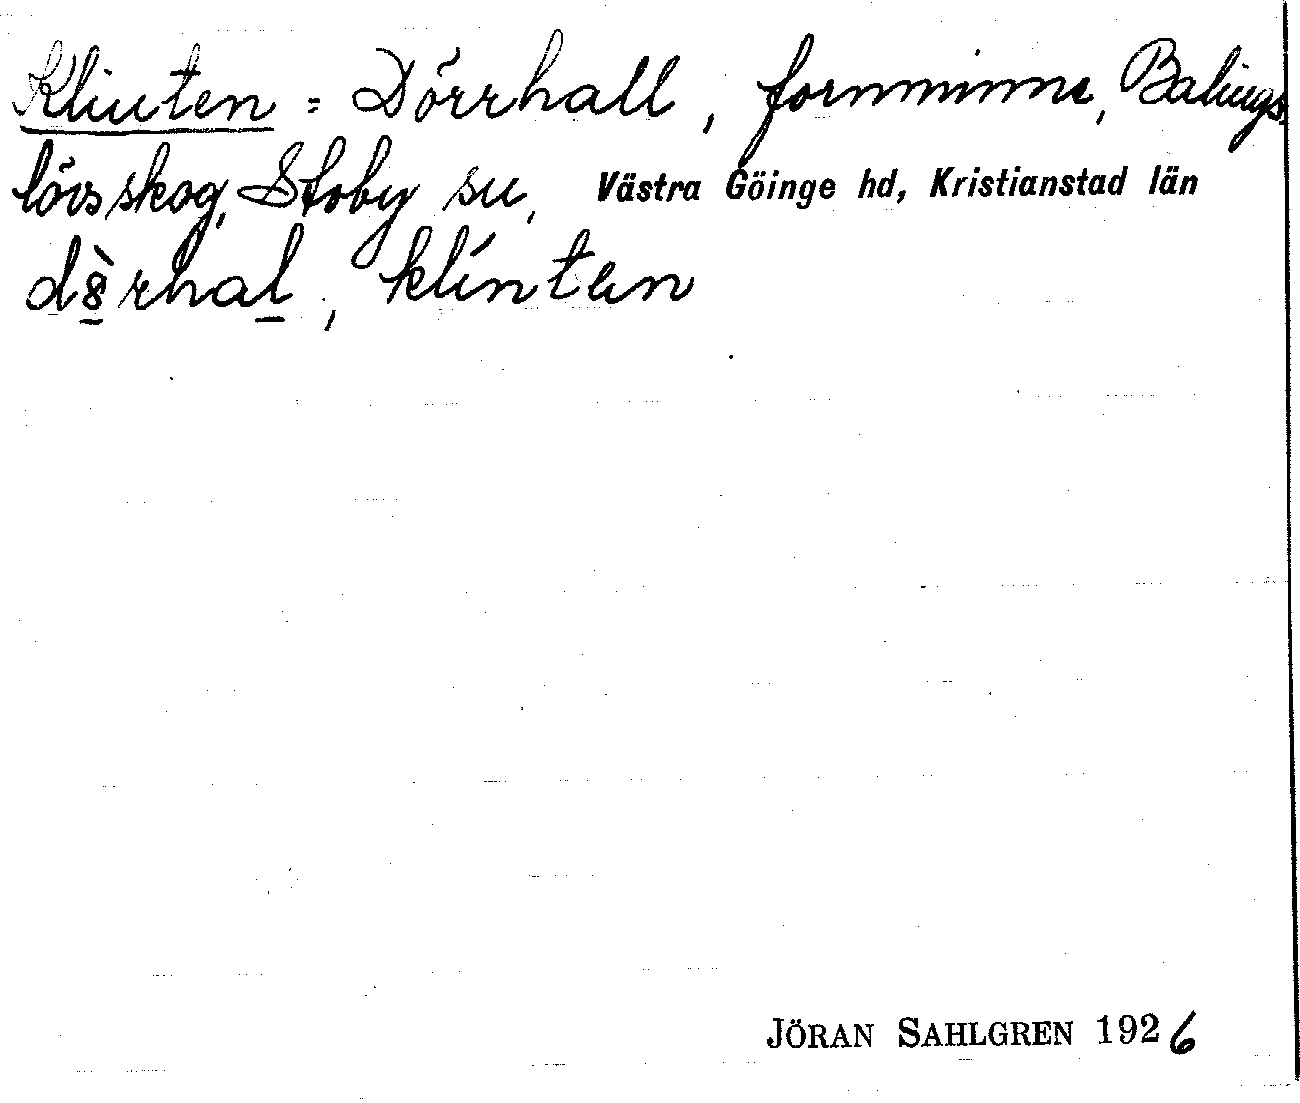 Klinten = Dörrhall, fornminne, Balings-
lövs skog, Stoby sn, Västra Göinge hd, Kristianstad län
klíntən
JÖRAN SAHLGREN 1926